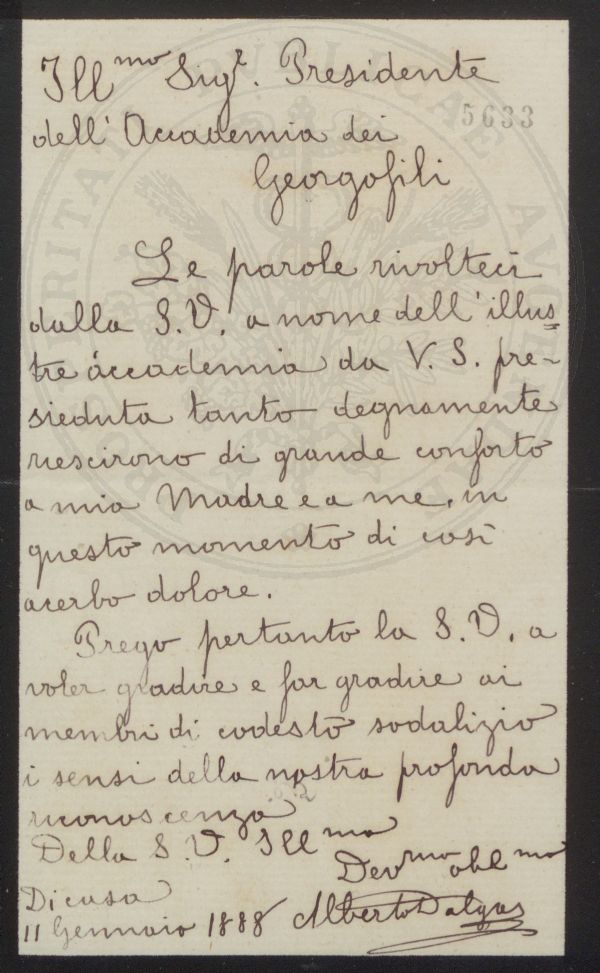 Ill mo Sigr. Presidente
5633
dell'Accademia dei
Georgofili
Le parole rivolteci
dalla S.V. a nome dell'illus=
tre accademia da V. S. pre-
sieduta tanto degnamente
riescirono di grande conforto
a mia Madre e a me, in
questo momento di così
acerbo dolore.
Prego pertanto la S.V. a
voler gradire e far gradire ai
membri di codesto sodalizio
i sensi della nostra profonda
riconoscenza
Della S.V. Ill ma
Dev mo obl mo
Di casa
11 Gennaio 1888 Alberto Dalgas